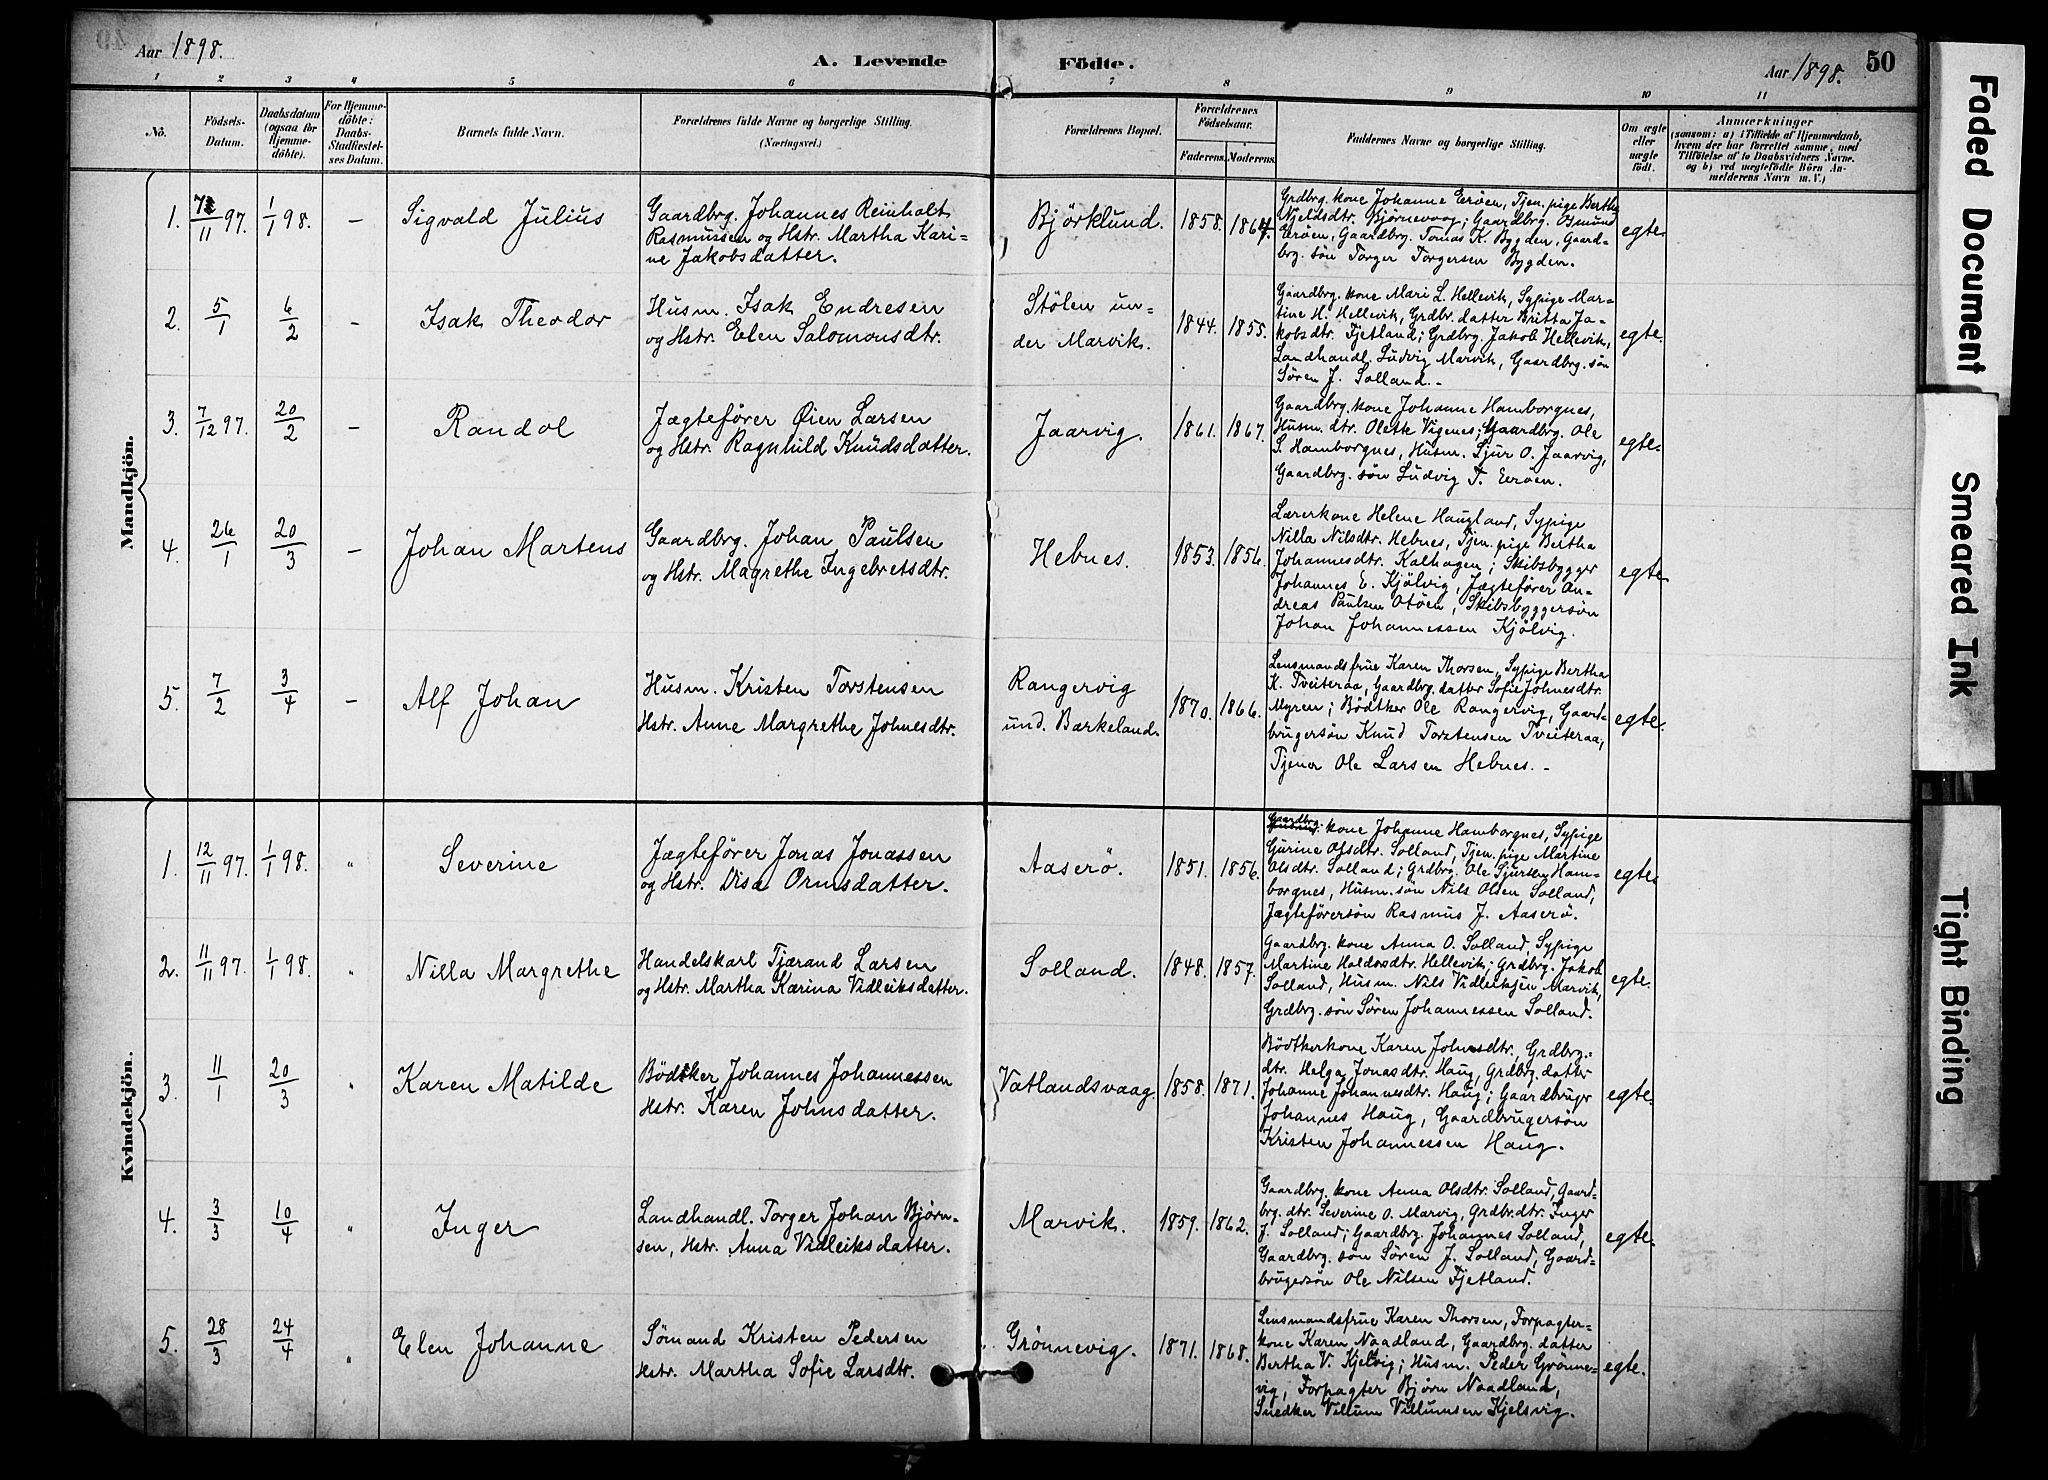 Aar 1898.
A. Levende Födte.
Aar 1898. 50
1 2 3 4 5 6 7 8 9 10 11
No.
Födsels-
Datum.
Daabsdatum
(ogsaa for
Hjemme-
döbte).
For Hjemme-
döbte:
Daabs-
Stadfæstel-
ses Datum.
Barnets fulde Navn.
Forældrenes fulde Navne og borgerlige Stilling.
(Næringsvei.)
Forældrenes Bopæl.
Forældrenes
Födselsaar.
Faderens. Moderens.
Faddernes Navne og borgerlige Stilling.
Om ægte
eller
uægte
födt.
Anmærkninger
(saasom: a) i Tilfælde af Hjemmedaab,
hvem der har forrettet samme, med
Tilföielse af to Daabsvidners Navne,
og b) ved uægtefödte Börn An-
melderens Navn m. V.)
Mandkjön.
1. 7/11 97. 1/1 98. – Sigvald Julius
Gaardbrg. Johannes Reinholt
Rasmussen og Hstr. Martha Kari-
ne Jakobsdatter.
Bjørklund. 1858. 1864.
Grdbrg. kone Johanne Eerøen, Tjen. pige Bertha
Njeldsdtr. Bjørnevaag; Gaardbrg. Osmund
Eerøen, Gaardbrg. Tomas K. Bygden, Gaard-
brg. søn Torger Torgersen Bygden.
egte.
2. 5/1 6/2 – Isak Theodor
Husm. Isak Endresen
og Hstr. Elen Salomonsdtr.
Stölen un-
der Marvik.
1844. 1855.
Gaardbrg. kone Mari L. Hellevik, Sypige Mar-
tine H. Hellevik, Grdbr. datter Britta Ja-
kobsdtr. Fjetland; Grdbrg. Jakob Hellevik,
Landhandl. Ludvig Marvik, Gaardbrg. søn
Søren J. Solland. –
egte.
3. 7/12 97. 20/2 – Randol
Jægtefører Øien Larsen
og Hstr. Ragnhild Knudsdatter.
Jaarvig. 1861. 1867.
Gaardbrg. kone Johanne Hamborgnes,
Husm. dtr. Olette Vigenes; Gaardbrg. Ole
S. Hamborgnes, Husm. Sjur O. Jaarvig,
Gaardbrg. søn Ludvig T. Eerøen.
egte.
4. 26/1 20/3 – Johan Martens
Gaardbrg. Johan Paulsen
og Hstr. Magrethe Ingebretsdtr.
Hebnes. 1853. 1856.
Lærerkone Helene Haugland, Sypige
Nilla Nilsdtr. Hebnes, Tjen. pige Bertha
Johannesdtr. Kalhagen; Skibsbygger
Johannes E. Kjølvig, Jægtefører An-
dreas Paulsen Otøen, Skibsbyggersøn
Johan Johannessen Kjølvig.
egte.
5. 7/2 3/4 – Alf Johan
Husm. Kristen Torstensen
Hstr. Anne Margrethe Johnesdtr.
Rangervig
und. Barkeland.
1870. 1866.
Lensmandsfrue Karen Thorsen, Sypige Bertha
K. Tveiteraa, Gaardbrg. datter Sofie Johnesdtr.
Myren; Bødtker Ole Rangervig, Gaard-
brugersøn Knud Torstensen Tveiteraa,
Tjener Ole Larsen Hebnes. –
egte.
Kvindekjön.
1. 12/11 97. 1/1 98. " Severine
Jægtefører Jonas Jonassen
og Hstr. Visa Ormsdatter.
Aaserø. 1851. 1856.
Gaardbrg. kone Johanne Hamborgnes, Sypige
Gurine Olsdtr. Solland, Tjen. pige Martine
Olsdtr. Solland; Grdbrg. Ole Sjursen Ham-
borgnes, Husm. søn Nils Olsen Solland,
Jægteførersøn Rasmus J. Aaserø.
egte.
2. 11/11 97. 1/1 98. " Nilla Margrethe
Handelskarl Tjærand Larsen
og Hstr. Martha Karina Vidleiksdatter.
Solland. 1848. 1857.
Gaardbrg. kone Anna O. Solland Sypige
Martine Haldorsdtr. Hellevik; Grdbrg. Jakob
Solland, Husm. Nils Vidleiksen Marvik,
Grdbrg. søn Søren Johannessen Solland.
egte.
3. 11/1 20/3 " Karen Matilde
Bødtker Johannes Johannessen
Hstr. Karen Johnsdatter.
Vatlandsvaag 1858. 1871.
Bødtkerkone Karen Johnsdtr., Grdbrg.-
dtr. Helga Jonasdtr. Haug, Grdbrg. datter
Johanne Johannesdtr. Haug; Gaardbruger
Johannes Haug, Gaardbrugersøn
Kristen Johannessen Haug.
egte.
4. 3/3 10/4 " Inger
Landhandl. Torger Johan Bjørn-
sen, Hstr. Anna Vidleiksdatter.
Marvik. 1859. 1862.
Gaardbrg. kone Anna Olsdtr. Solland, Gaard-
brg. dtr. Severine O. Marvig, Grdbr. dtr. Inger
J. Solland; Gaardbrg. Johannes Solland,
Gaardbrg. søn Søren J. Solland, Gaard-
brugersøn Ole Nilsen Fjetland.
egte.
5. 28/3 24/4 " Elen Johanne
Sømand Kristen Pedersen
Hstr. Martha Sofie Larsdtr.
Grønnevig. 1871. 1868.
Lensmandsfrue Karen Thorsen, Forpagter-
kone Karen Naadland, Gaardbrg. datter
Bertha V. Kjelsvig; Husm. Peder Grønne-
vig, Forpagter Bjørn Naadland,
Snedker Villum Villumsen Kjelsvig.
egte.
Faded Document
Smeared Ink
Tight Binding